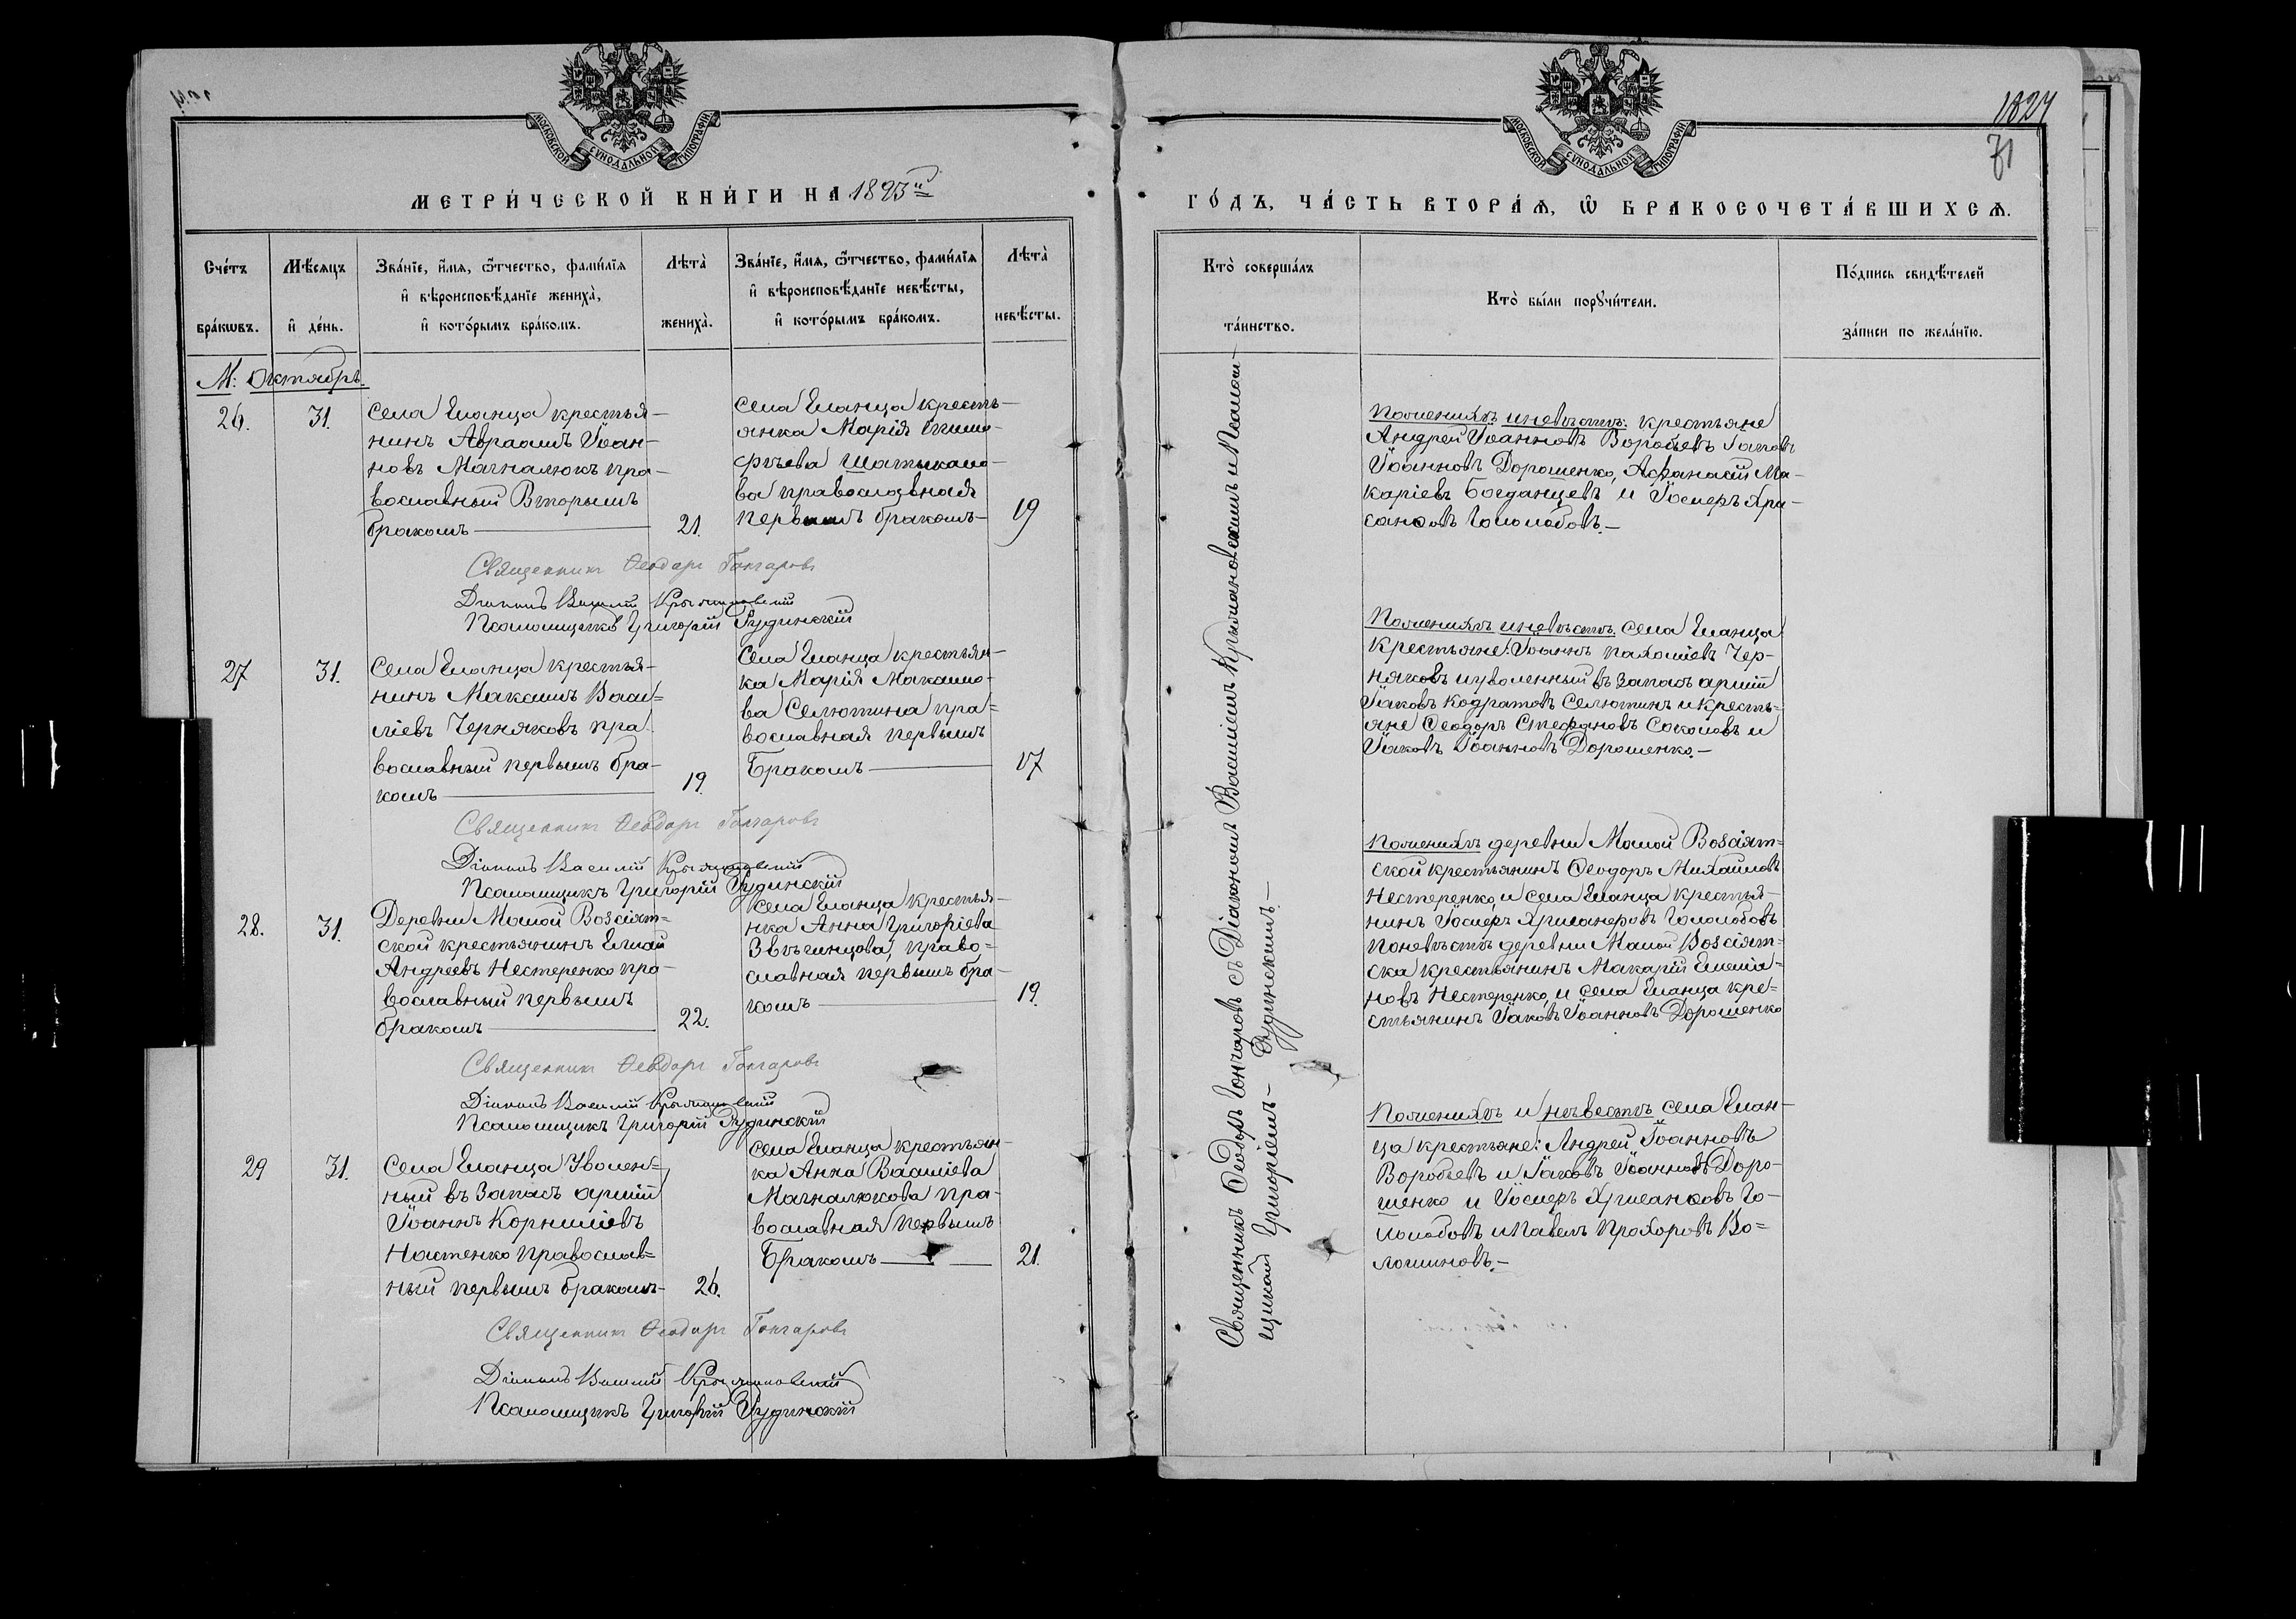 МОСКОВСКОЙ СѴНОДАЛЬНОЙ ТИПОГРАФІИ
МЕТРИ́ЧЕСКОЙ КНИ́ГИ НА 1893й
Сче́тъ бра́кωвъ.
Мѣ́сяцъ и҆ де́нь.
Зва́нїе, и҆́мя, ѻ҆́тчество, фами́лїя
и҆ вѣроисповѣ́данїе жениха̀,
и҆ кото́рымъ бра́комъ.
Лѣта̀ жениха̀.
Зва́нїе, и҆́мя, ѻ҆́тчество, фами́лїя
и҆ вѣроисповѣ́данїе невѣ́сты,
и҆ кото́рымъ бра́комъ.
Лѣта̀ невѣ́сты.
М: Октябрь.
26. 31.
Села Еланца крестья-
нинъ Авраамъ Іоан-
новъ Магналюкъ пра-
вославный Вторымъ
бракомъ
21.
Села Еланца кресть-
янка Марія
ва православная
первымъ бракомъ
19
Священникъ Ѳеодоръ Гончаровъ
Діаконъ Василій Крыжановскій
Псаломщикъ Григорій Рудинскій
27 31.
Села Еланца крестья-
нинъ Максимъ Васи-
ліевъ Черняковъ пра-
вославный первымъ бра-
комъ
19.
Села Еланца крестьян-
ка Марія Максимо-
ва Селютина пра-
вославная первымъ
Бракомъ
17
Священникъ Ѳеодоръ Гончаровъ
Діаконъ Василій Крыжановскій
Псаломщикъ Григорій Рудинскій
28. 31.
Деревни Малой Возсіят-
ской крестьянинъ
Андреевъ Нестеренко пра-
вославный первымъ
бракомъ
22.
Села Еланца крестья-
нка Анна Григоріева
Звѣгинцова, право-
славная первымъ бра-
комъ
19.
Священникъ Ѳеодоръ Гончаровъ
Діаконъ Василій Крыжановскій
Псаломщикъ Григорій Рудинскій
29 31.
Села Еланца Уволен-
ный въ Запасъ арміи
Іоаннъ Корниліевъ
Настенко православ-
ный первымъ бракомъ
26.
Села Еланца крестьян-
ка Анна Василіева
Магналюкова пра-
вославная первымъ
Бракомъ
21.
Священникъ Ѳеодоръ Гончаровъ
Діаконъ Василій Крыжановскій
Псаломщикъ Григорій Рудинскій
1827
71
МОСКОВСКОЙ СѴНОДАЛЬНОЙ ТИПОГРАФІИ
ГО́ДЪ, ЧА́СТЬ ВТОРА́Я, Ѽ БРАКОСОЧЕТА́ВШИХСЯ.
Кто̀ соверша́лъ та́инство.
Кто̀ бы́ли порꙋчи́тели.
По́дпись свидѣ́телей
за́писи по жела́нїю.
Священникъ Ѳеодоръ Гончаровъ съ Діакономъ Василіемъ Крыжановскимъ и Псалом-
щикомъ Григоріемъ Рудинскимъ.
По женихѣ и невѣстѣ: крестьяне
Андрей Іоанновъ Воробьевъ Іаковъ
Іоанновъ Дорошенко, Аѳанасій Ма-
каріевъ Богданцевъ и Іосифъ Хри-
сановъ Гололобовъ.
По женихѣ и невѣстѣ: села Еланца
Крестьяне: Іоаннъ Пахоміевъ Чер-
няковъ и уволенный въ запасъ арміи
Іаковъ Кодратовъ Селютинъ и кресть-
яне Ѳеодоръ Стефановъ Соколовъ и
Іаковъ Іоанновъ Дорошенко.
По женихѣ деревни Малой Возсіят-
ской крестьянинъ Ѳеодоръ Михайловъ
Нестеренко, и села Еланца крестья-
нинъ Іосифъ Гололобовъ
по невѣстѣ деревни Малой Возсіят-
ска крестьянинъ Макарій Емеліа-
новъ Нестеренко, и села Еланца кре-
стьянинъ Іаковъ Іоанновъ Дорошенко
По женихѣ и нѣвестѣ села Елан-
ца крестьяне: Андрей Іоанновъ
Воробьевъ и Іаковъ Іоанновъ Доро-
шенко и Іосифъ Го-
лолобовъ и Павелъ Прохоровъ Во-
лошиновъ.